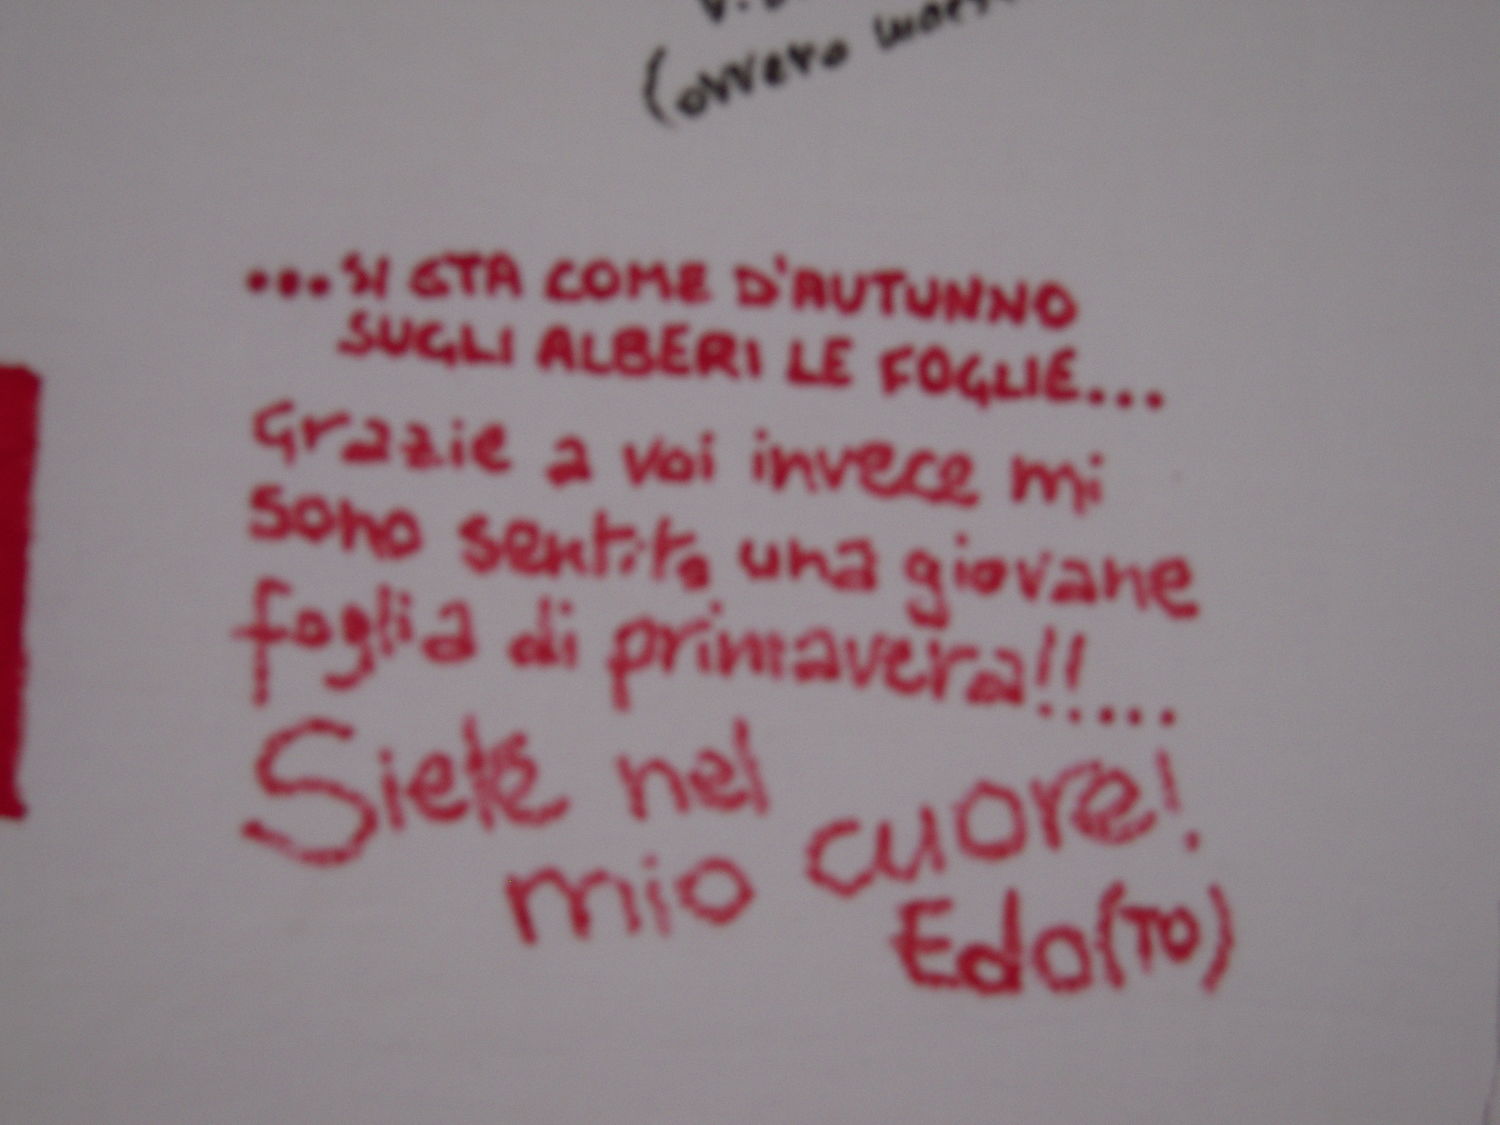 (ovvero
...SI STA COME D'AUTUNNO
SUGLI ALBERI LE FOGLIE...
Grazie a voi invece mi
sono sentito una giovane
foglia di primavera!!....
Siete nel
mio cuore!
Edo(TO)